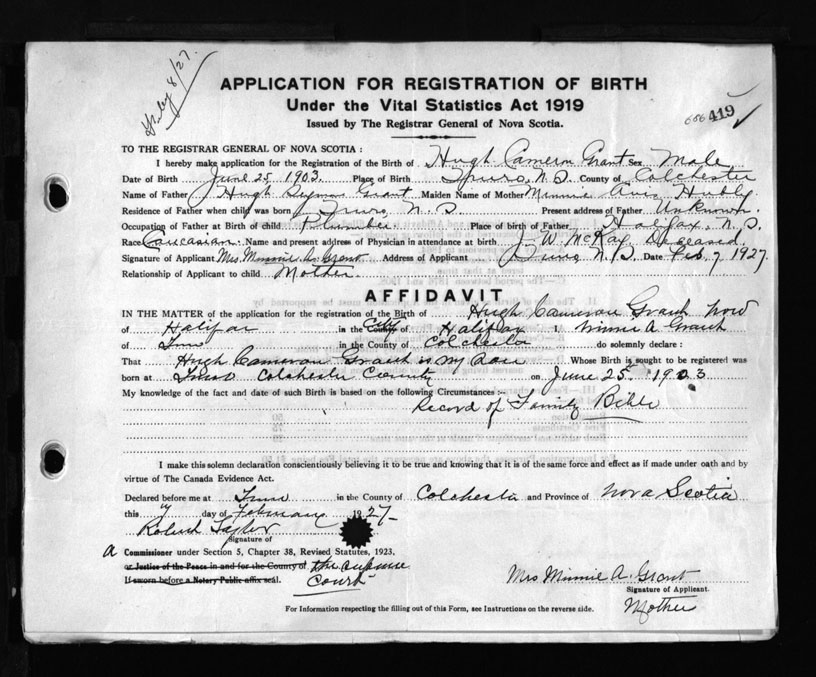 8/27
APPLICATION FOR REGISTRATION OF BIRTH
Under the Vital Statistics Act 1919
Issued by The Registrar General of Nova Scotia.
419
TO THE REGISTRAR GENERAL OF NOVA SCOTIA:
I hereby make application for the Registration of the Birth of Hugh Cameron Grant Sex Male
Date of Birth June 25 1903. Place of Birth Truro, N.S. County of Colchester
Name of Father Hugh Grant Maiden Name of Mother Minnie Avis Hubly
Residence of Father when child was born Truro, N.S. Present address of Father Unknown.
Occupation of Father at Birth of child Plumber Place of birth of Father Halifax, N.S.
Race Caucasian Name and present address of Physician in attendance at birth J. W. McKay, Deceased
Signature of Applicant Mrs. Minnie A. Grant Address of Applicant Truro, N.S. Date Feb. 7 1927.
Relationship of Applicant to child Mother
AFFIDAVIT
IN THE MATTER of the application for the registration of the Birth of Hugh Cameron Grant now
of Halifax in the City of Halifax I, Minnie A Grant
of Truro in the County of Colchester do solemnly declare:
That Hugh Cameron Grant is my son Whose Birth is sought to be registered was
born at Truro Colchester County on June 25 1903
My knowledge of the fact and date of such Birth is based on the following Circumstances:-
Record of Family Bible
I make this solemn declaration conscientiously believing it to be true and knowing that it is of the same force and effect as if made under oath and by
virtue of The Canada Evidence Act.
Declared before me at Truro in the County of Colchester and Province of Nova Scotia
this 7 day of February 1927
Robert Taylor
Signature of
a Commissioner under Section 5, Chapter 38, Revised Statutes, 1923.
or Justice of the Peace in and for the County of the supreme
If sworn before a Notary Public affix seal. Court
Mrs Minnie A. Grant
Signature of Applicant.
Mother
For Information respecting the filling out of this Form, see Instructions on the reverse side.